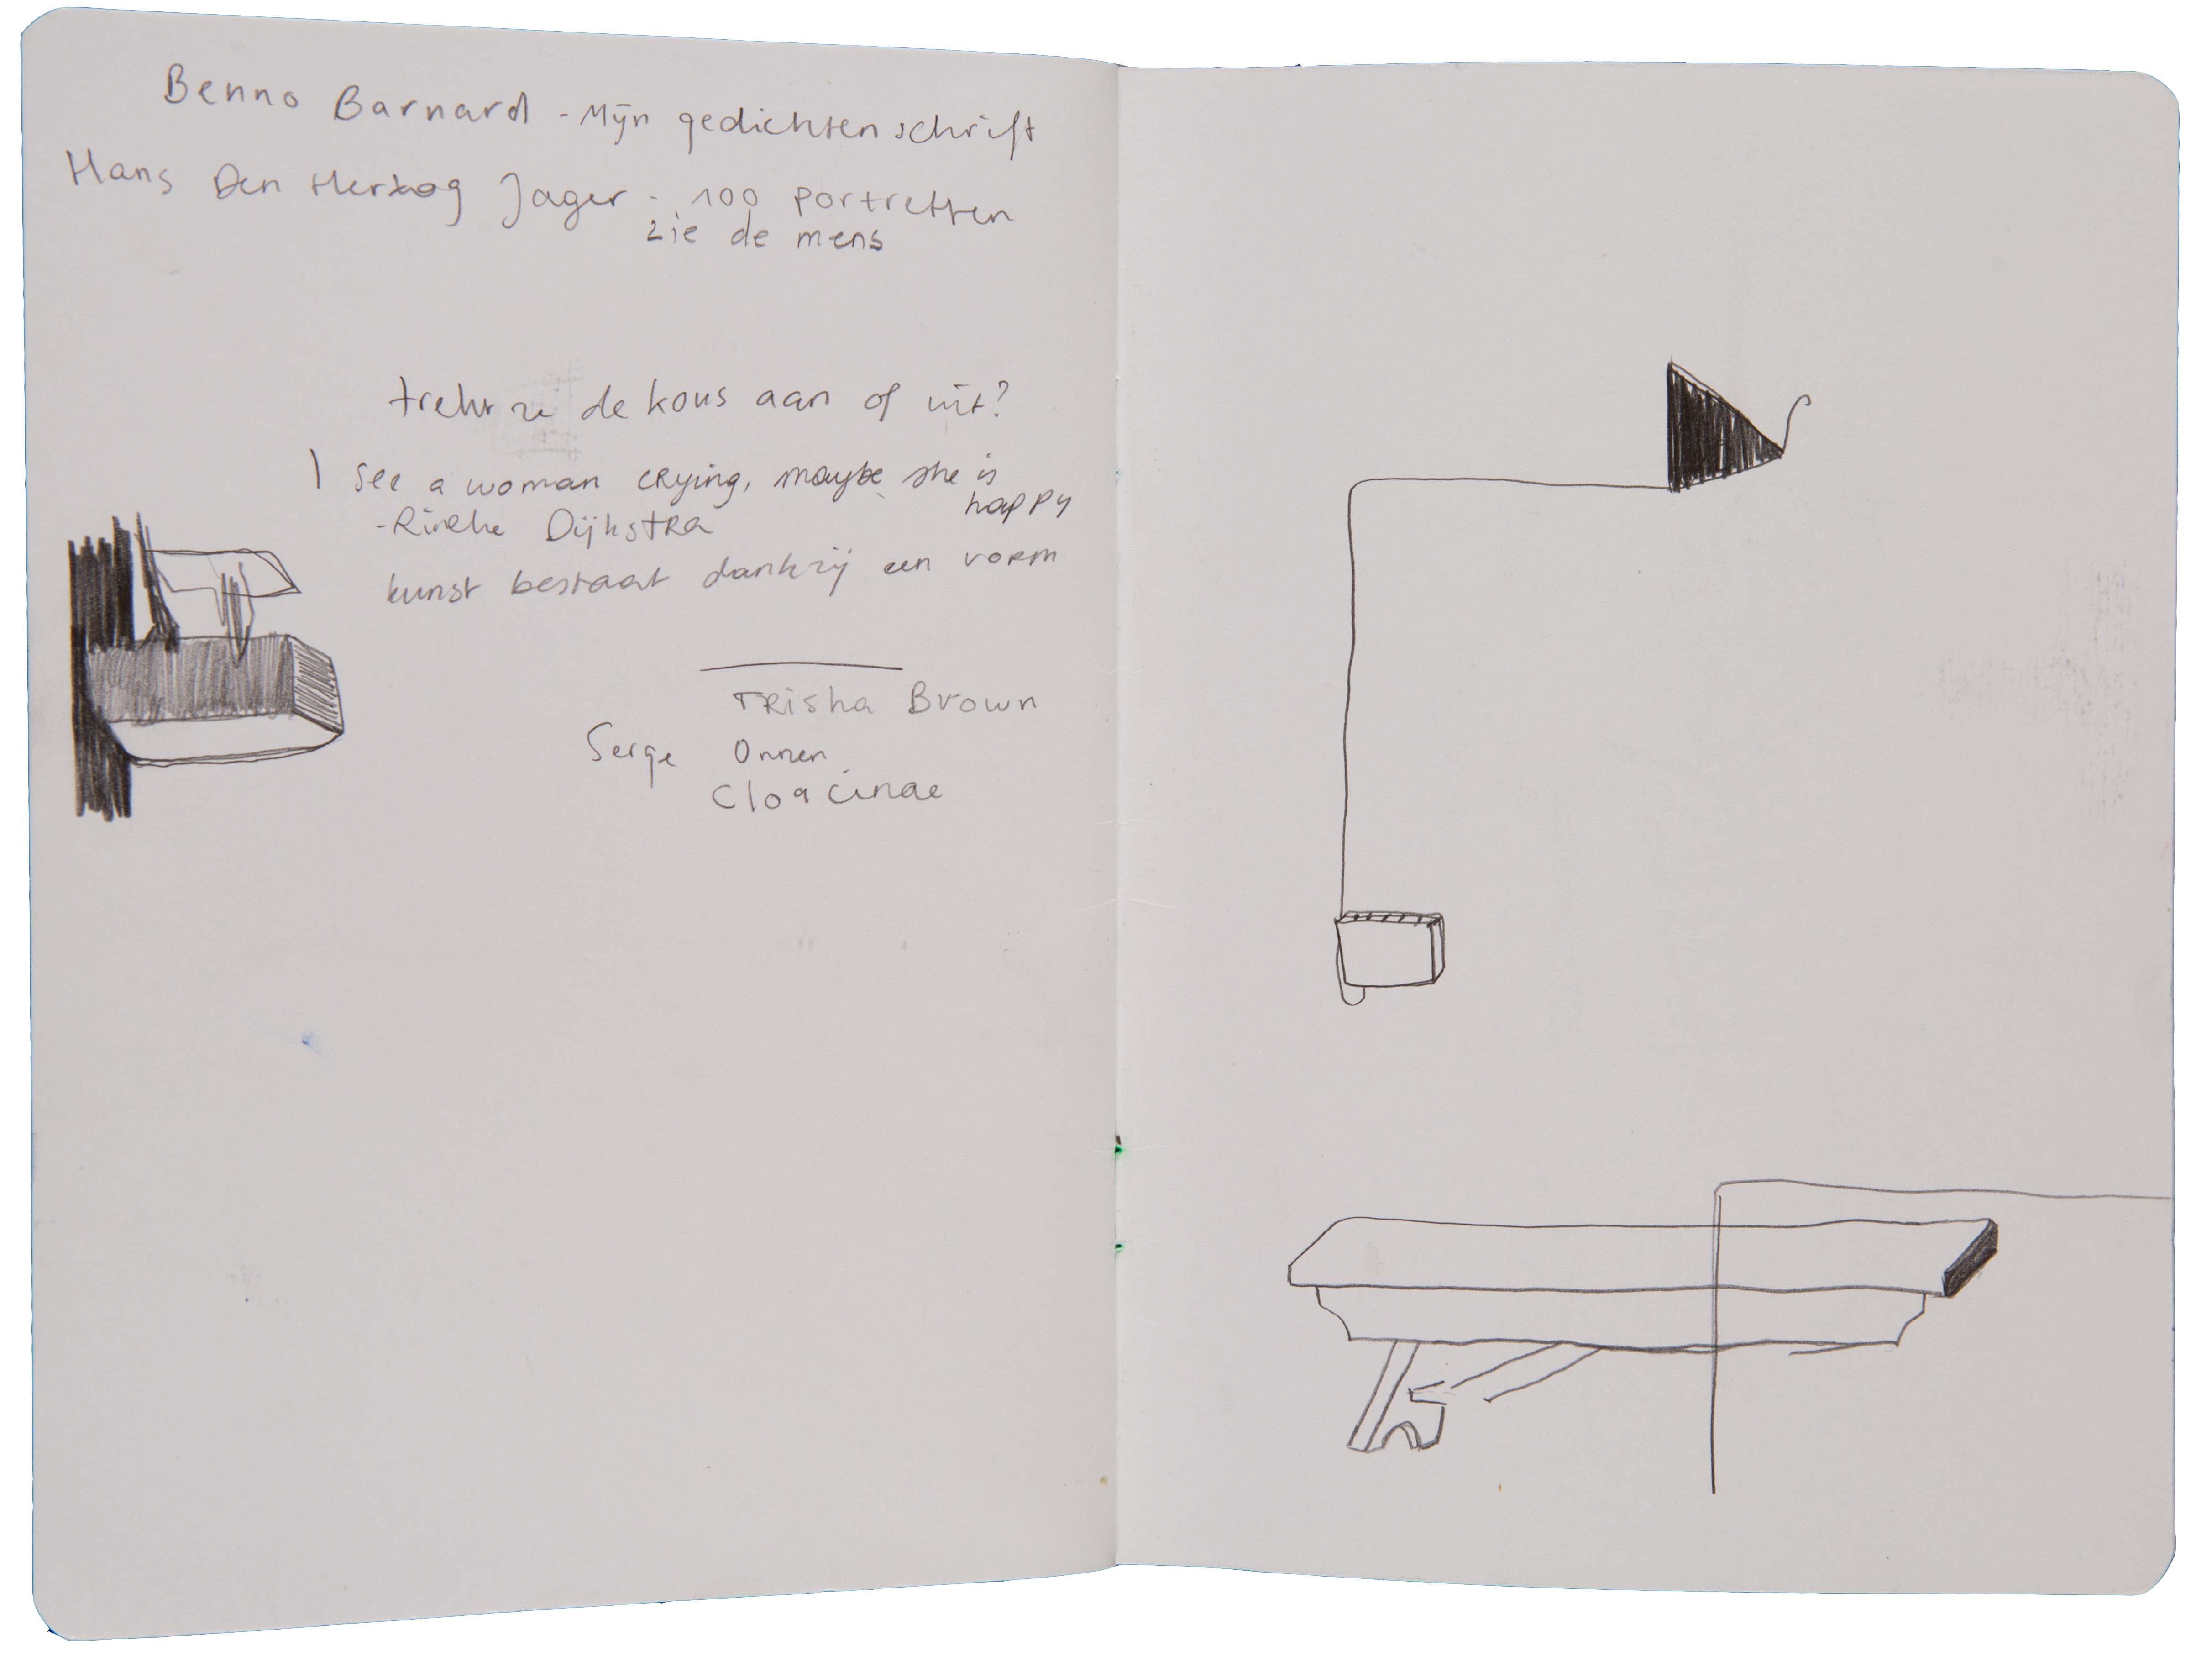 Benno Barnard - Mijn gedichtenschrift
Hans Den Hertog Jager - 100 portretten
zie de mens
trekt ze de kous aan of uit?
I see a woman crying, maybe she is
happy
- Rineke Dijkstra
kunst bestaat dankzij een vorm
Trisha Brown
Serge Onnen
Cloacinae